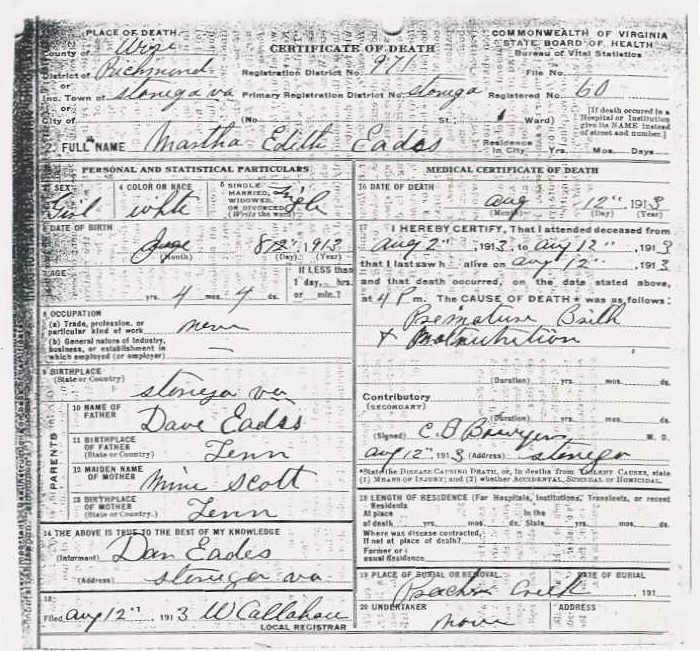 PLACE OF DEATH
County of Wise
District of Richmond
or
Inc. Town of Stonega Va
or
City of
CERTIFICATE OF DEATH
COMMONWEALTH OF VIRGINIA
STATE BOARD OF HEALTH
Bureau of Vital Statistics
Registration District No. 971
File No.
Primary Registration District No. Stonega
Registered No. 60
(No. St.; Ward)
[If death occured in a
Hospital or Institution
give its NAME instead
of street and number.]
2. FULL NAME Martha Edith Eads
Residence
In City Yrs. Mos. Days
PERSONAL AND STATISTICAL PARTICULARS
3 SEX
Girl
4 COLOR OR RACE
white
5 SINGLE
MARRIED,
WIDOWED,
OR DIVORCED
(Write the word)
6 DATE OF BIRTH
(Month) (Day) 1913 (Year)
7 AGE
4 mos. 4 ds.
yrs.
If LESS than
1 day, hrs.
or min.?
8 OCCUPATION
(a) Trade, profession, or
particular kind of work
(b) General nature of Industry,
business, or establishment in
which employed (or employer)
9 BIRTHPLACE
(State or Country)
Stonega Va
PARENTS
10 NAME OF
FATHER
Dave Eads
11 BIRTHPLACE
OF FATHER
(State or Country)
Tenn
12 MAIDEN NAME
OF MOTHER
Mine Scott
13 BIRTHPLACE
OF MOTHER
(State or Country.)
Tenn
14 THE ABOVE IS TRUE TO THE BEST OF MY KNOWLEDGE
(Informant) Dan Eades
(Address) Stonega Va
15
Filed Aug 12" 1913 W Callahan
LOCAL REGISTRAR
MEDICAL CERTIFICATE OF DEATH
16 DATE OF DEATH
Aug 12" 1913
(Month) (Day) (Year)
17 I HEREBY CERTIFY, That I attended deceased from
Aug 2" 1913, to Aug 12" 1913
that I last saw h alive on Aug 12" 1913
and that death occurred, on the date stated above,
at 4 P m. The CAUSE OF DEATH * was as follows:
Premature Birth
+ Malnutrition
(Duration) yrs. mos. ds.
Contributory
(SECONDARY)
(Duration) yrs. mos. ds.
(Signed) C B Bowyer M. D.
Aug 12" 1913 (Address) Stonega
*State the DISEASE CAUSING DEATH, or, in deaths from VIOLENT CAUSES, state
(1) MEANS OF INJURY; and (2) whether ACCIDENTAL, SUICIDAL OR HOMICIDAL.
18 LENGTH OF RESIDENCE (For Hospitals, Institutions, Transients, or recent
Residents
At place
of death yrs. mos. ds.
In the
State yrs. mos. ds.
Where was disease contracted,
If not at place of death?
Former or
usual Residence
19 PLACE OF BURIAL OR REMOVAL
DATE OF BURIAL
191
20 UNDERTAKER
ADDRESS